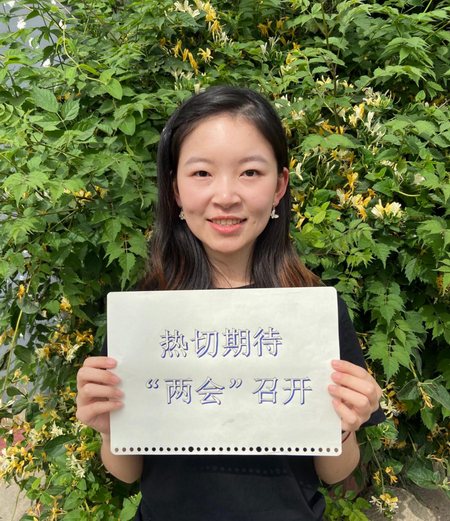 热切期待
“两会”召开